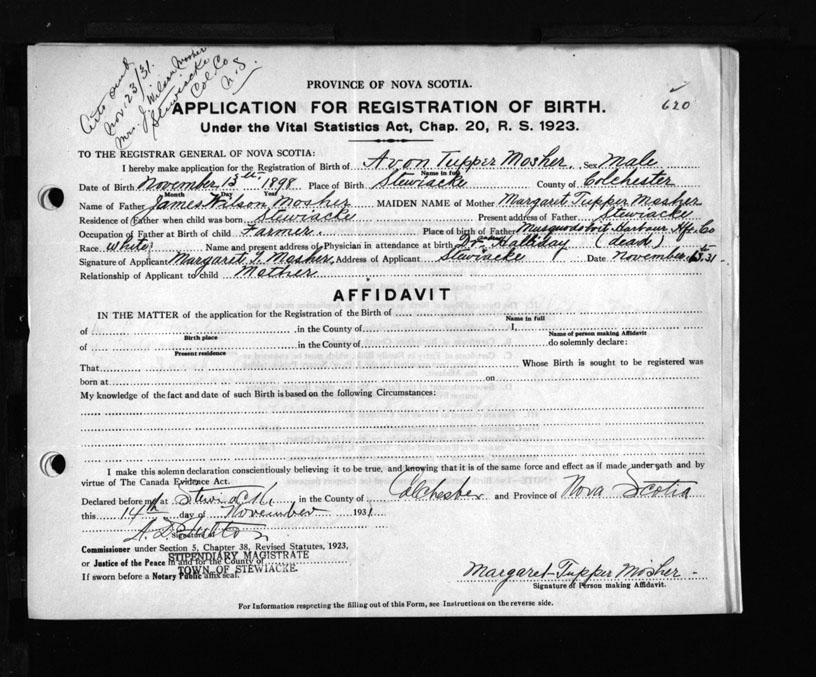 Nov. 23/31.
Mrs. J. Wilson Mosher
Stewiacke
Col. Co.
N.S.
PROVINCE OF NOVA SCOTIA.
APPLICATION FOR REGISTRATION OF BIRTH.
620
Under the Vital Statistics Act, Chap. 20, R. S. 1923.
TO THE REGISTRAR GENERAL OF NOVA SCOTIA:
I hereby make application for the Registration of Birth of Avon Tupper Mosher. Sex Male
Name in full
Date of Birth November 13th 1898 Place of Birth Stewiacke County of Colchester
Month Day Year
Name of Father James Wilson Mosher MAIDEN NAME of Mother Margaret Tupper Mosher
Residence of Father when child was born Stewiacke Present address of Father Stewiacke
Occupation of Father at Birth of child Farmer. Place of birth of Father Musquodoboit Harbour Hfx. Co
Race White Name and present address of Physician in attendance at birth Dr Halliday (dead)
Signature of Applicant Margaret T. Mosher, Address of Applicant Stewiacke Date November 31
Relationship of Applicant to child Mother
AFFIDAVIT
IN THE MATTER of the application for the Registration of the Birth of
Name in full
of , in the County of I,
Birth place Name of person making Affidavit
of in the County of do solemnly declare:
Present residence
That Whose Birth is sought to be registered was
born at on
My knowledge of the fact and date of such Birth is based on the following Circumstances:
I make this solemn declaration conscientiously believing it to be true, and knowing that it is of the same force and effect as if made under oath and by
virtue of The Canada Evidence Act.
Declared before me at Stewiacke in the County of Colchester and Province of Nova Scotia
this 14th day of November 1931
Signature of
Commissioner under Section 5, Chapter 38, Revised Statutes, 1923,
STIPENDIARY MAGISTRATE
or Justice of the Peace in and for the County of
TOWN OF STEWIACKE
If sworn before a Notary Public affix seal.
Margaret Tupper Mosher
Signature of Person making Affidavit.
For Information respecting the filling out of this Form, see Instructions on the reverse side.